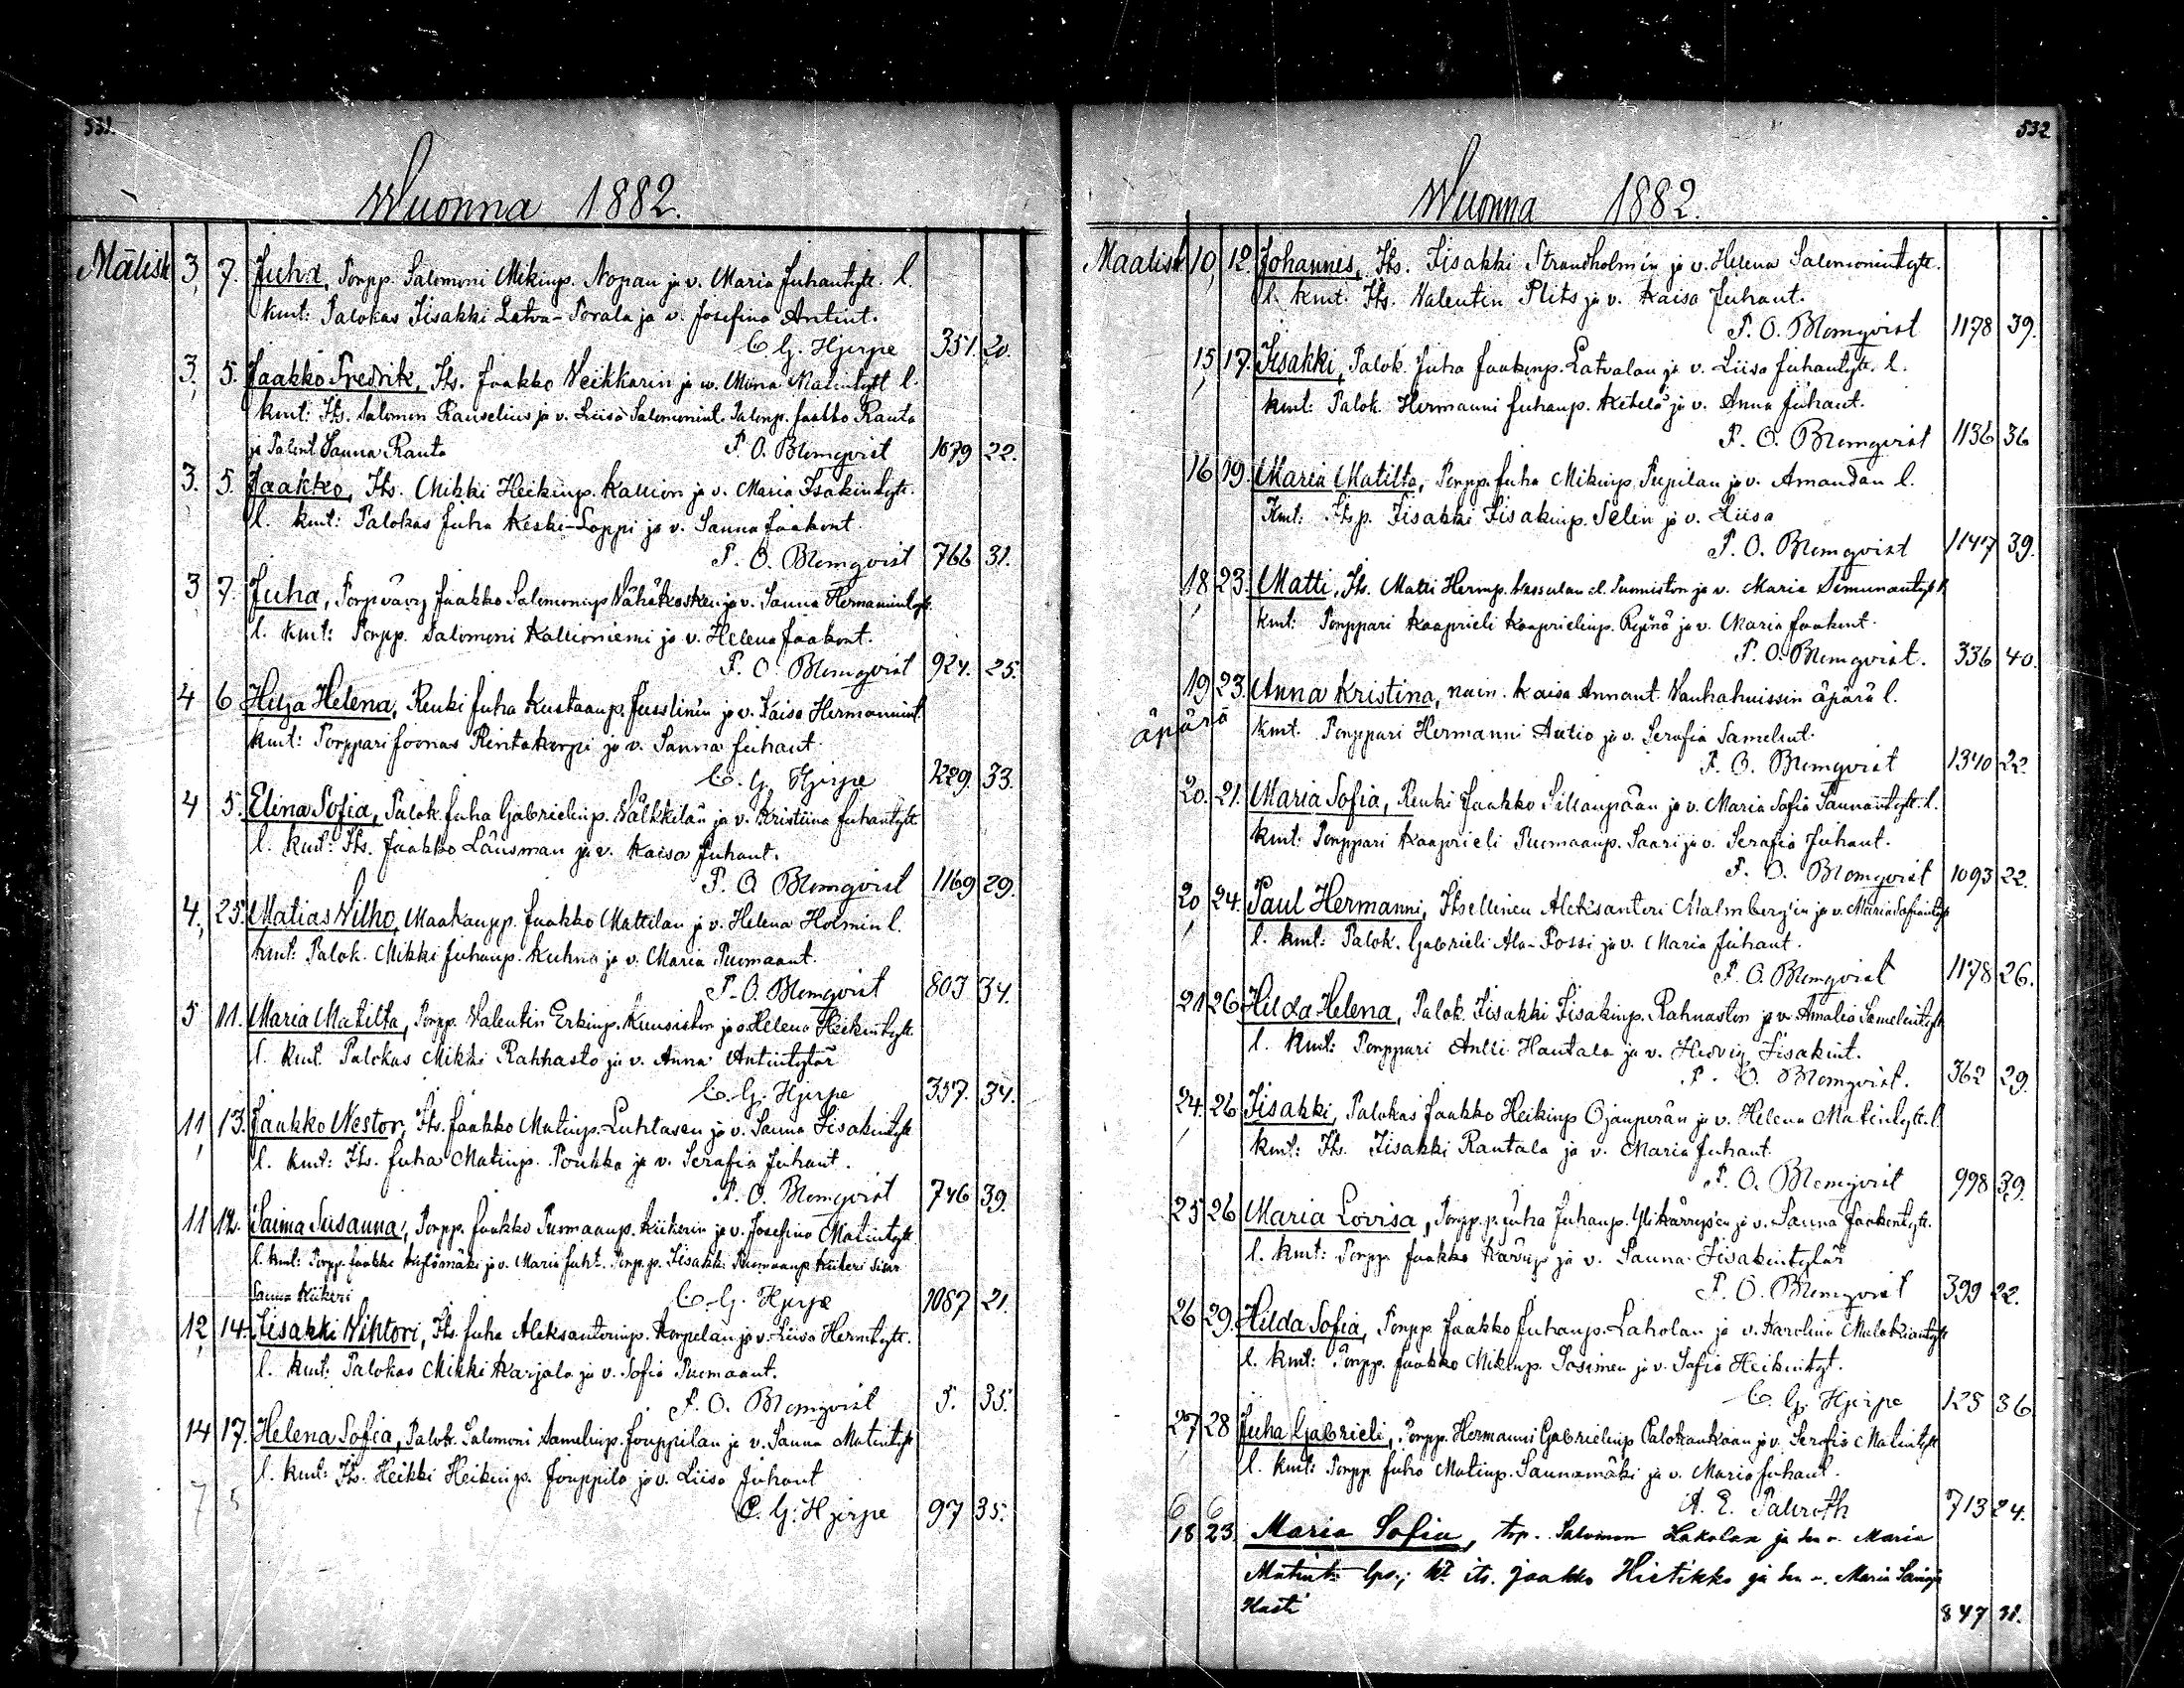 531.
Wuonna 1882.
Mālisk 3, 7. Juha, Torpp. Salomoni Mikinp. Nopan ja v. Maria Juhantytt. l.
kmt: Palokas Iisakki Latva-Porala ja v. Josefina Antint.
C. G. Hjerpe 351. 20.
3, 5. Jaakko Fredrik, Its. Jaakko Weikkarin ja w. Mina Matintytt l.
kmt: Its. Salomon Rauselius ja v. Liisa Salomonint. Talonp. Jaakko Rauta
ja Talont Sanna Rauta P. O. Blomqvist 1079 22.
3. 5. Jaakko, Its. Mikki Heikinp. Kallion ja v. Maria Isakintytt.
l. kmt: Palokas Juha Keski-Loppi ja v. Sanna Jaakont.
P. O. Blomqvist 766 31.
3 7. Juha, Torpvävy Jaakko Salomoninp Vähäkosken ja v. Sanna Hermannintytt.
l. kmt: Torpp. Salomoni Kallioniemi ja v. Helena Jaakont.
P. O. Blomqvist 924. 25.
4 6 Hilja Helena, Renki Juha Kustaanp. Jusslin'in ja v. Kaisa Hermannint.
kmt: Torppari Joonas Rintakorpi ja v. Sanna Juhant.
C. G. Hjerpe 1229. 33.
4 5. Elina Sofia, Palok. Juha Gabrielinp. Välkkilän ja v. Kristiina Juhantytt.
l. kmt: Its. Jaakko Länsman ja v. Kaisa Juhant.
P. O. Blomqvist 1169 29.
4., 25. Matias Vilho, Maakaupp. Jaakko Mattilan ja v. Helena Holmin l.
kmt: Palok. Mikki Juhanp. Kuhna ja v. Maria Tuomaant.
P. O. Blomqvist 803 34.
5 11. Maria Matilta, Torpp. Valentin Erkinp. Kuusiston ja v. Helena Heikintytt.
l. kmt. Palokas Mikki Rahnasto ja v. Anna Antintytär
C. G. Hjerpe 357. 34.
11, 13. Jaakko Nestor, Its. Jaakko Matinp. Luhtasen ja v. Sanna Iisakintytt
l. kmt: Its. Juha Matinp. Poukka ja v. Serafia Juhant.
P. O. Blomqvist 746 39.
11 12. Saima Susanna, Torpp. Jaakko Tuomaanp. Kiikerin ja v. Josefina Matintytt.
l. kmt: Torpp. Jaakko ja v. Maria Juht. Torp.p. Iisakki Tuomaanp. Kiikeri sisar
Sanna Kiikeri C. G. Hjerpe 1087 21.
12, 14. Iisakki Vihtori, Its. Juha Aleksanterinp. Korpelan ja v. Liisa Hermtytt.
l. kmt: Palokas Mikki Karjala ja v. Sofia Tuomaant.
P. O. Blomqvist 5. 35.
14 17. Helena Sofia, Palok. Salomoni Samulinp. Jouppilan ja v. Sanna Matintytt
l. kmt: Its. Heikki Heikinp. Jouppila ja v. Liisa Juhant
7 5 C. G. Hjerpe 97 35.
532
Wuonna 1882.
Maalisk 10, 12. Johannes, Its. Iisakki Strandholm'in ja v. Helena Salomonintytt.
l. kmt. Its. Valentin Plits ja v. Kaisa Juhant.
P. O. Blomqvist 1178 39.
15, 17. Iisakki, Palok. Juha Jaakonp. Latvalan ja v. Liisa Juhantytt. l.
kmt: Palok. Hermanni Juhanp. Ketelä ja v. Anna Juhant.
P. O. Blomqvist 1136 36
16 19. Maria Matilta, Torpp. Juha Mikinp. Pupilan ja v. Amandan l.
Kmt: Itsp. Iisakki Iisakinp. Selin ja v. Liisa
P. O. Blomqvist 1147 39.
18, 23. Matti, Its. Matti Hermp. el. ja v. Maria Simunantyt l.
kmt: Torppari Kaaprieli Kaaprielinp. ja v. Maria Jaakont.
P. O. Blomqvist. 336 40.
19 23. Anna Kristina, nain. Kaisa Annant. Vanhahuissin äpärä l.
äpärä kmt. Torppari Hermanni Autio ja v. Serafia Samelint.
P. O. Blomqvist 1340 22.
20. 21. Maria Sofia, Renki Jaakko Sillanpään ja v. Maria Sofia Sannantytt. l.
kmt: Torppari Kaaprieli Tuomaanp. Saari ja v. Serafia Juhant.
P. O. Blomqvist 1093 22.
20, 24. Paul Hermanni, Itsellinen Aleksanteri Malmberg'in ja v. Maria
l. kmt: Palok. Gabrieli Ala-Fossi ja v. Maria Juhant.
P. O. Blomqvist 1178 26.
21 26 Hilda Helena, Palok. Iisakki Iisakinp. Rahnaston ja v. Amalia Samelintytt
l. kmt: Torppari Antti Hautala ja v. Hedvig Iisakint.
P. O. Blomqvist. 362 29.
24, 26 Iisakki, Palokas Jaakko Heikinp Ojanperän ja v. Helena Matintytt. l.
kmt: Its. Iisakki Rantala ja v. Maria Juhant.
P. O. Blomqvist 998 39.
25 26 Maria Lovisa, Torpp. p. Juha Juhanp. ja v. Sanna Jaakontytt.
l. kmt: Torpp. Jaakko Kärppä ja v. Sanna Iisakintytär
P. O. Blomqvist 399 22.
26 29. Hilda Sofia, Torpp. Jaakko Juhanp. Laholan ja v. Karolina Malakiantytt
l. kmt: Torpp. Jaakko Mikinp. Sosimen ja v. Sofia Heikintyt.
C. G. Hjerpe 125 36
27 28 Juha Gabrieli, Torpp. Hermanni Gabrielinp Palokankaan ja v. Serafia Matintytt
l. kmt: Torpp. Juho Matinp. Saunamäki ja v. Maria Juhant.
A. E. Palmroth 713 24.
6 6
18 23. Maria Sofia, trp. Salomon Hakolan ja sen v. Maria
Matint: lps.; kt its. Jaakko Hietikko ja sen v. Maria
847 31.